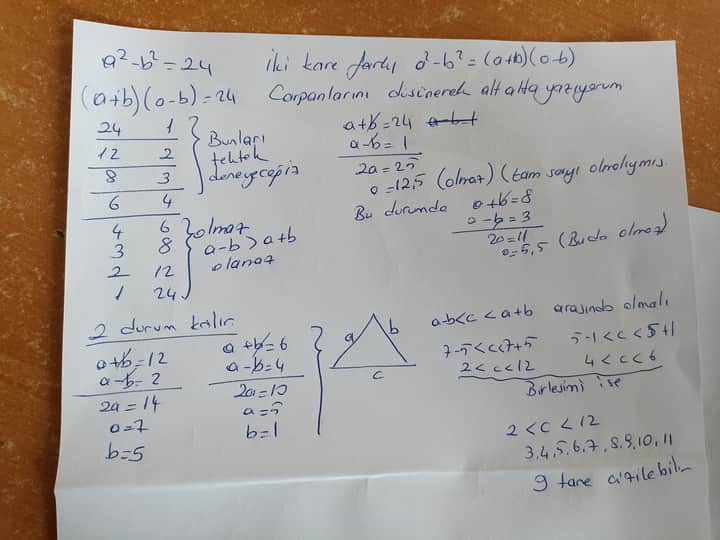 a²-b²=24 İki kare farkı a²-b²=(a+b)(a-b)
(a+b)(a-b)=24 Çarpanlarını düsünerek alt alta yazıyorum
24 1
12 2
8 3
6 4
Bunları
tektek
deneyeceğiz
4 6
3 8
2 12
1 24
olmaz
a-b>a+b
olamaz
a+b=24 a-b=1
a-b=1
2a=25
a=12,5 (olmaz) (tam sayı olmalıymış.
Bu durumda a+b=8
a-b=3
2a=11
a=5,5 (Buda olmaz)
2 durum kalır.
a+b=12
a-b=2
2a=14
a=7
b=5
a+b=6
a-b=4
2a=10
a=5
b=1
a b
c
a-b<c<a+b arasında olmalı
7-5<c<7+5 5-1<c<5+1
2<c<12 4<c<6
Birleşimi ise
2<c<12
3,4,5,6,7,8,9,10,11
9 tane çizilebilir